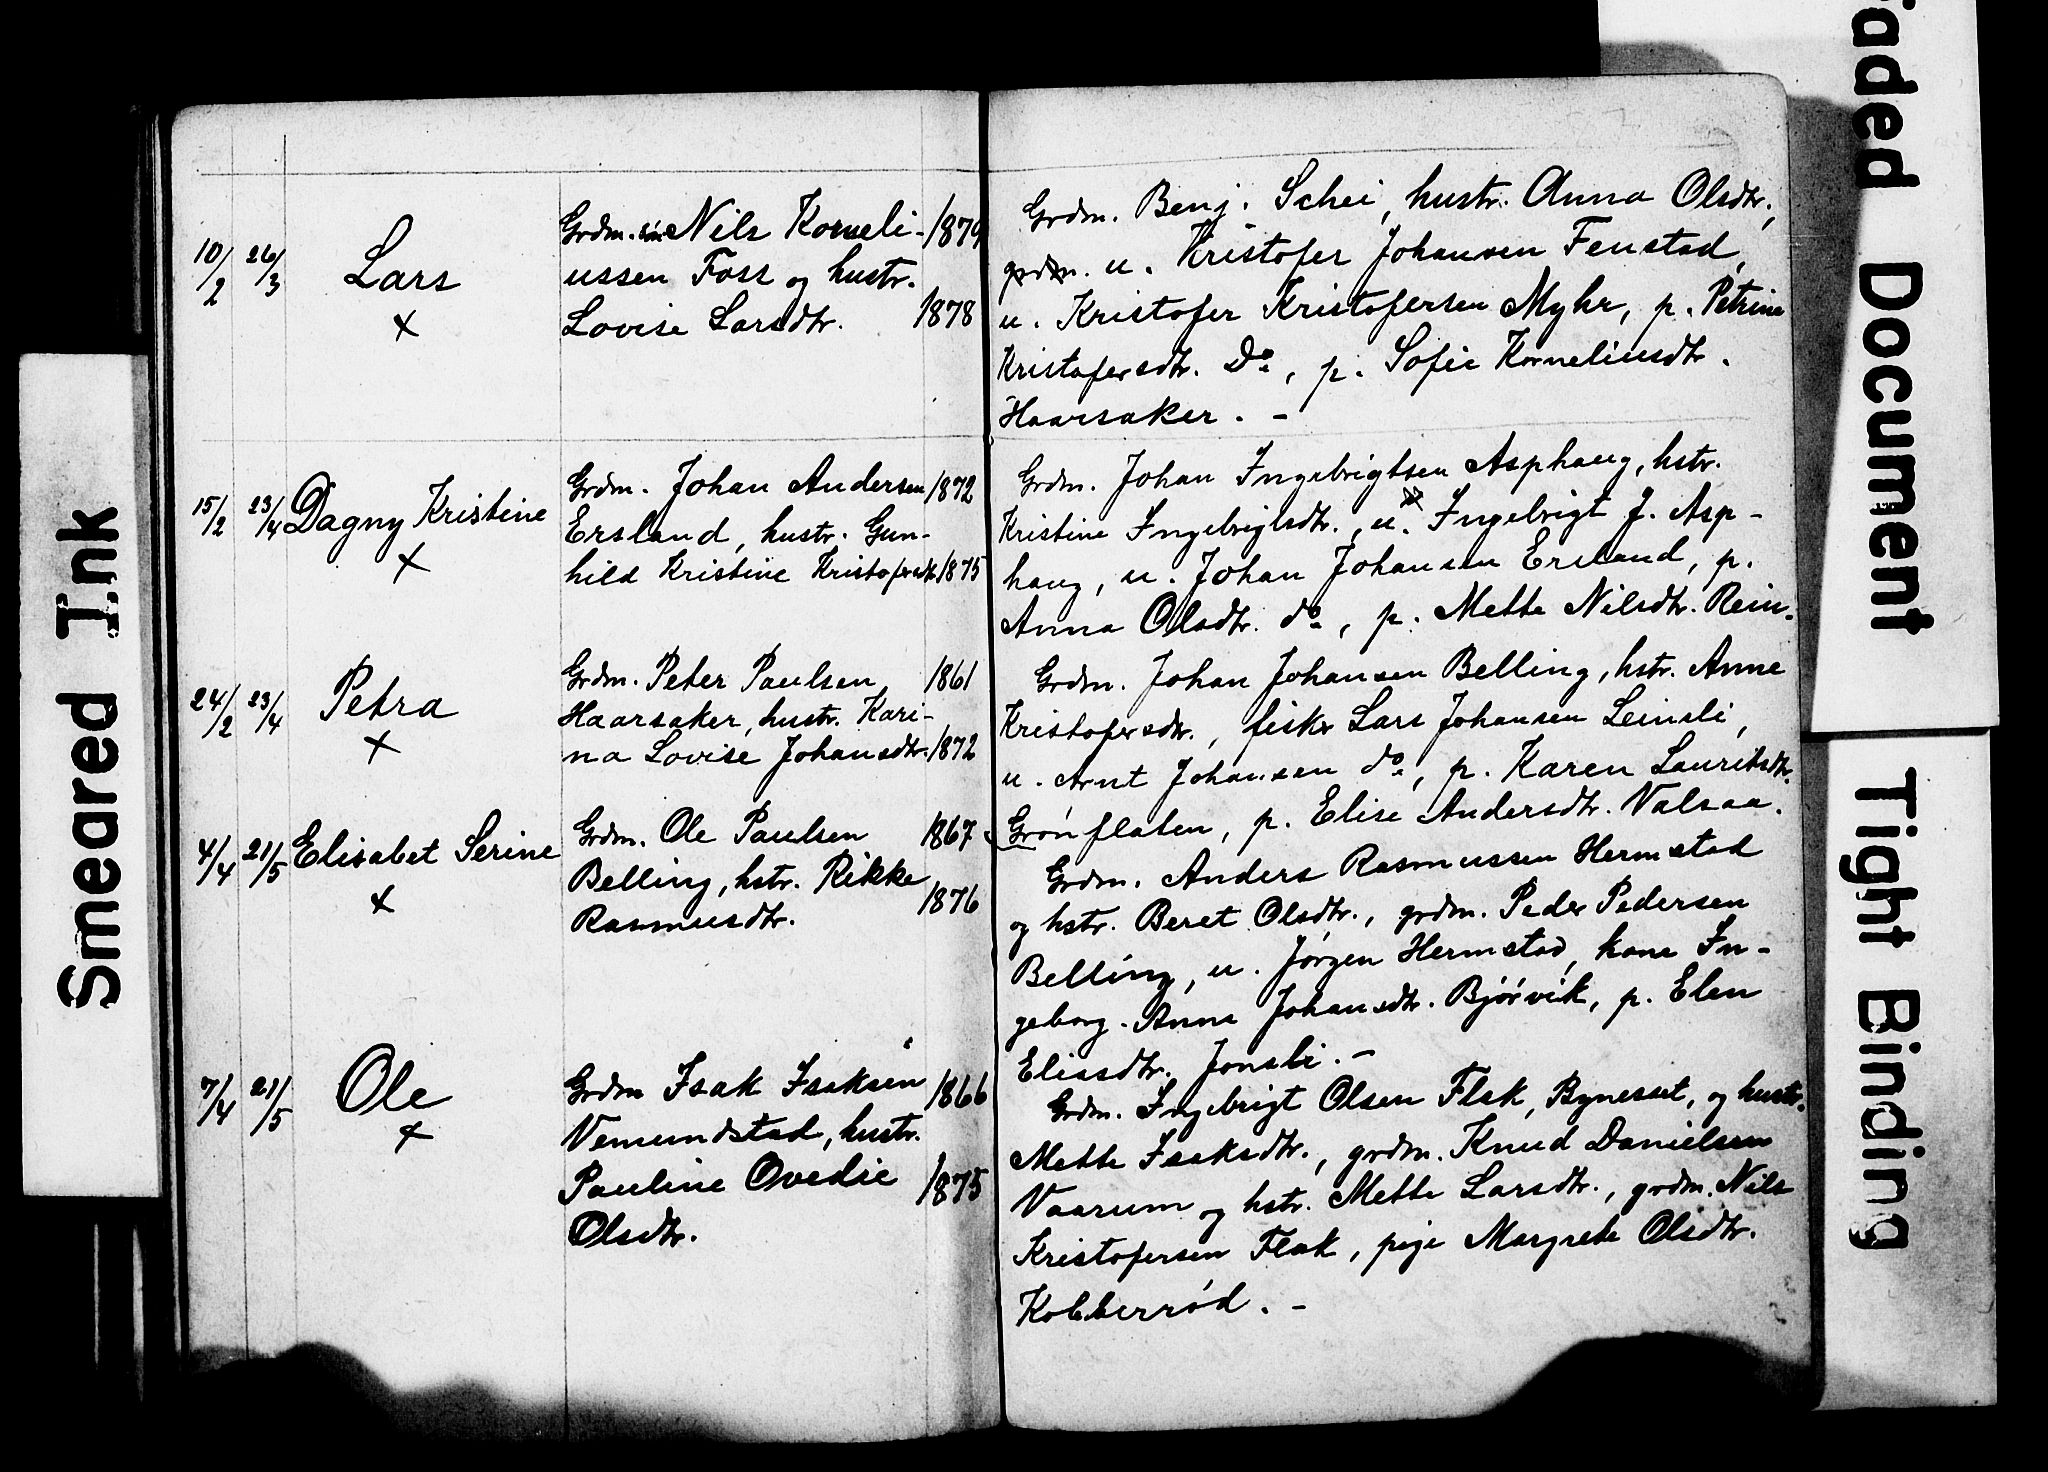 10/2 26/3 Lars
×
Grdm. Nils Korneli- 1879
ussen Foss og hustr.
Lovise Larsdtr. 1878
Grdm. Benj. Schei, hustr. Anna Olsdtr.,
grdm. u. Kristofer Johansen Fenstad,
u. Kristofer Kristofersen Myhr, p. Petrine
Kristofersdtr. Do., p. Sofie Korneliusdtr.
Haarsaker. -
15/2 23/4 Dagny Kristine
×
Grdm. Johan Andersen 1872
Ersland, hustr. Gun-
hild Kristine Kristofersdtr. 1875
Grdm. Johan Ingebrigtsen Asphaug, hstr.
Kristine Ingebrigtsdtr., u. Ingebrigt J. Asp-
haug, u. Johan Johansen Ersland, p.
Anna Olsdtr. do., p. Mette Nilsdtr. Rein.
24/2 23/4 Petra
×
Grdm. Peter Paulsen 1861
Haarsaker, hustr. Kari-
na Lovise Johansdtr. 1872
Grdm. Johan Johansen Belling, hstr. Anne
Kristofersdtr., fisker Lars Johansen Leinsli,
u. Arnt Johansen do., p. Karen Lauritsdtr.
Grønflaten, p. Elise Andersdtr. Valsaa.
4/4 21/5 Elisabet Serine
×
Grdm. Ole Paulsen 1867
Belling, hstr. Rikke
Rasmusdtr. 1876
Grdm. Anders Rasmussen Hermstad
og hstr. Beret Olsdtr., grdm. Peder Pedersen
Belling, u. Jørgen Hermstad, kone In-
geborg. Anna Johansdtr. Bjørvik, p. Elen
Elissdtr. Jonsli. -
7/4 21/5 Ole
×
Grdm Isak Isaksen 1866
Vemundstad, hustr.
Pauline Ovedie 1875
Olsdtr.
Grdm. Ingebrigt Olsen Flak, Bynesset, og hustr.
Mette Isaksdtr., grdm. Knud Danielsen
Vaarum og hstr. Mette Larsdtr., grdm. Nils
Kristofersen Flak, pige Margrete Olsdtr.
Kobberrød. -
Smeared Ink
Faded Document
Tight Binding